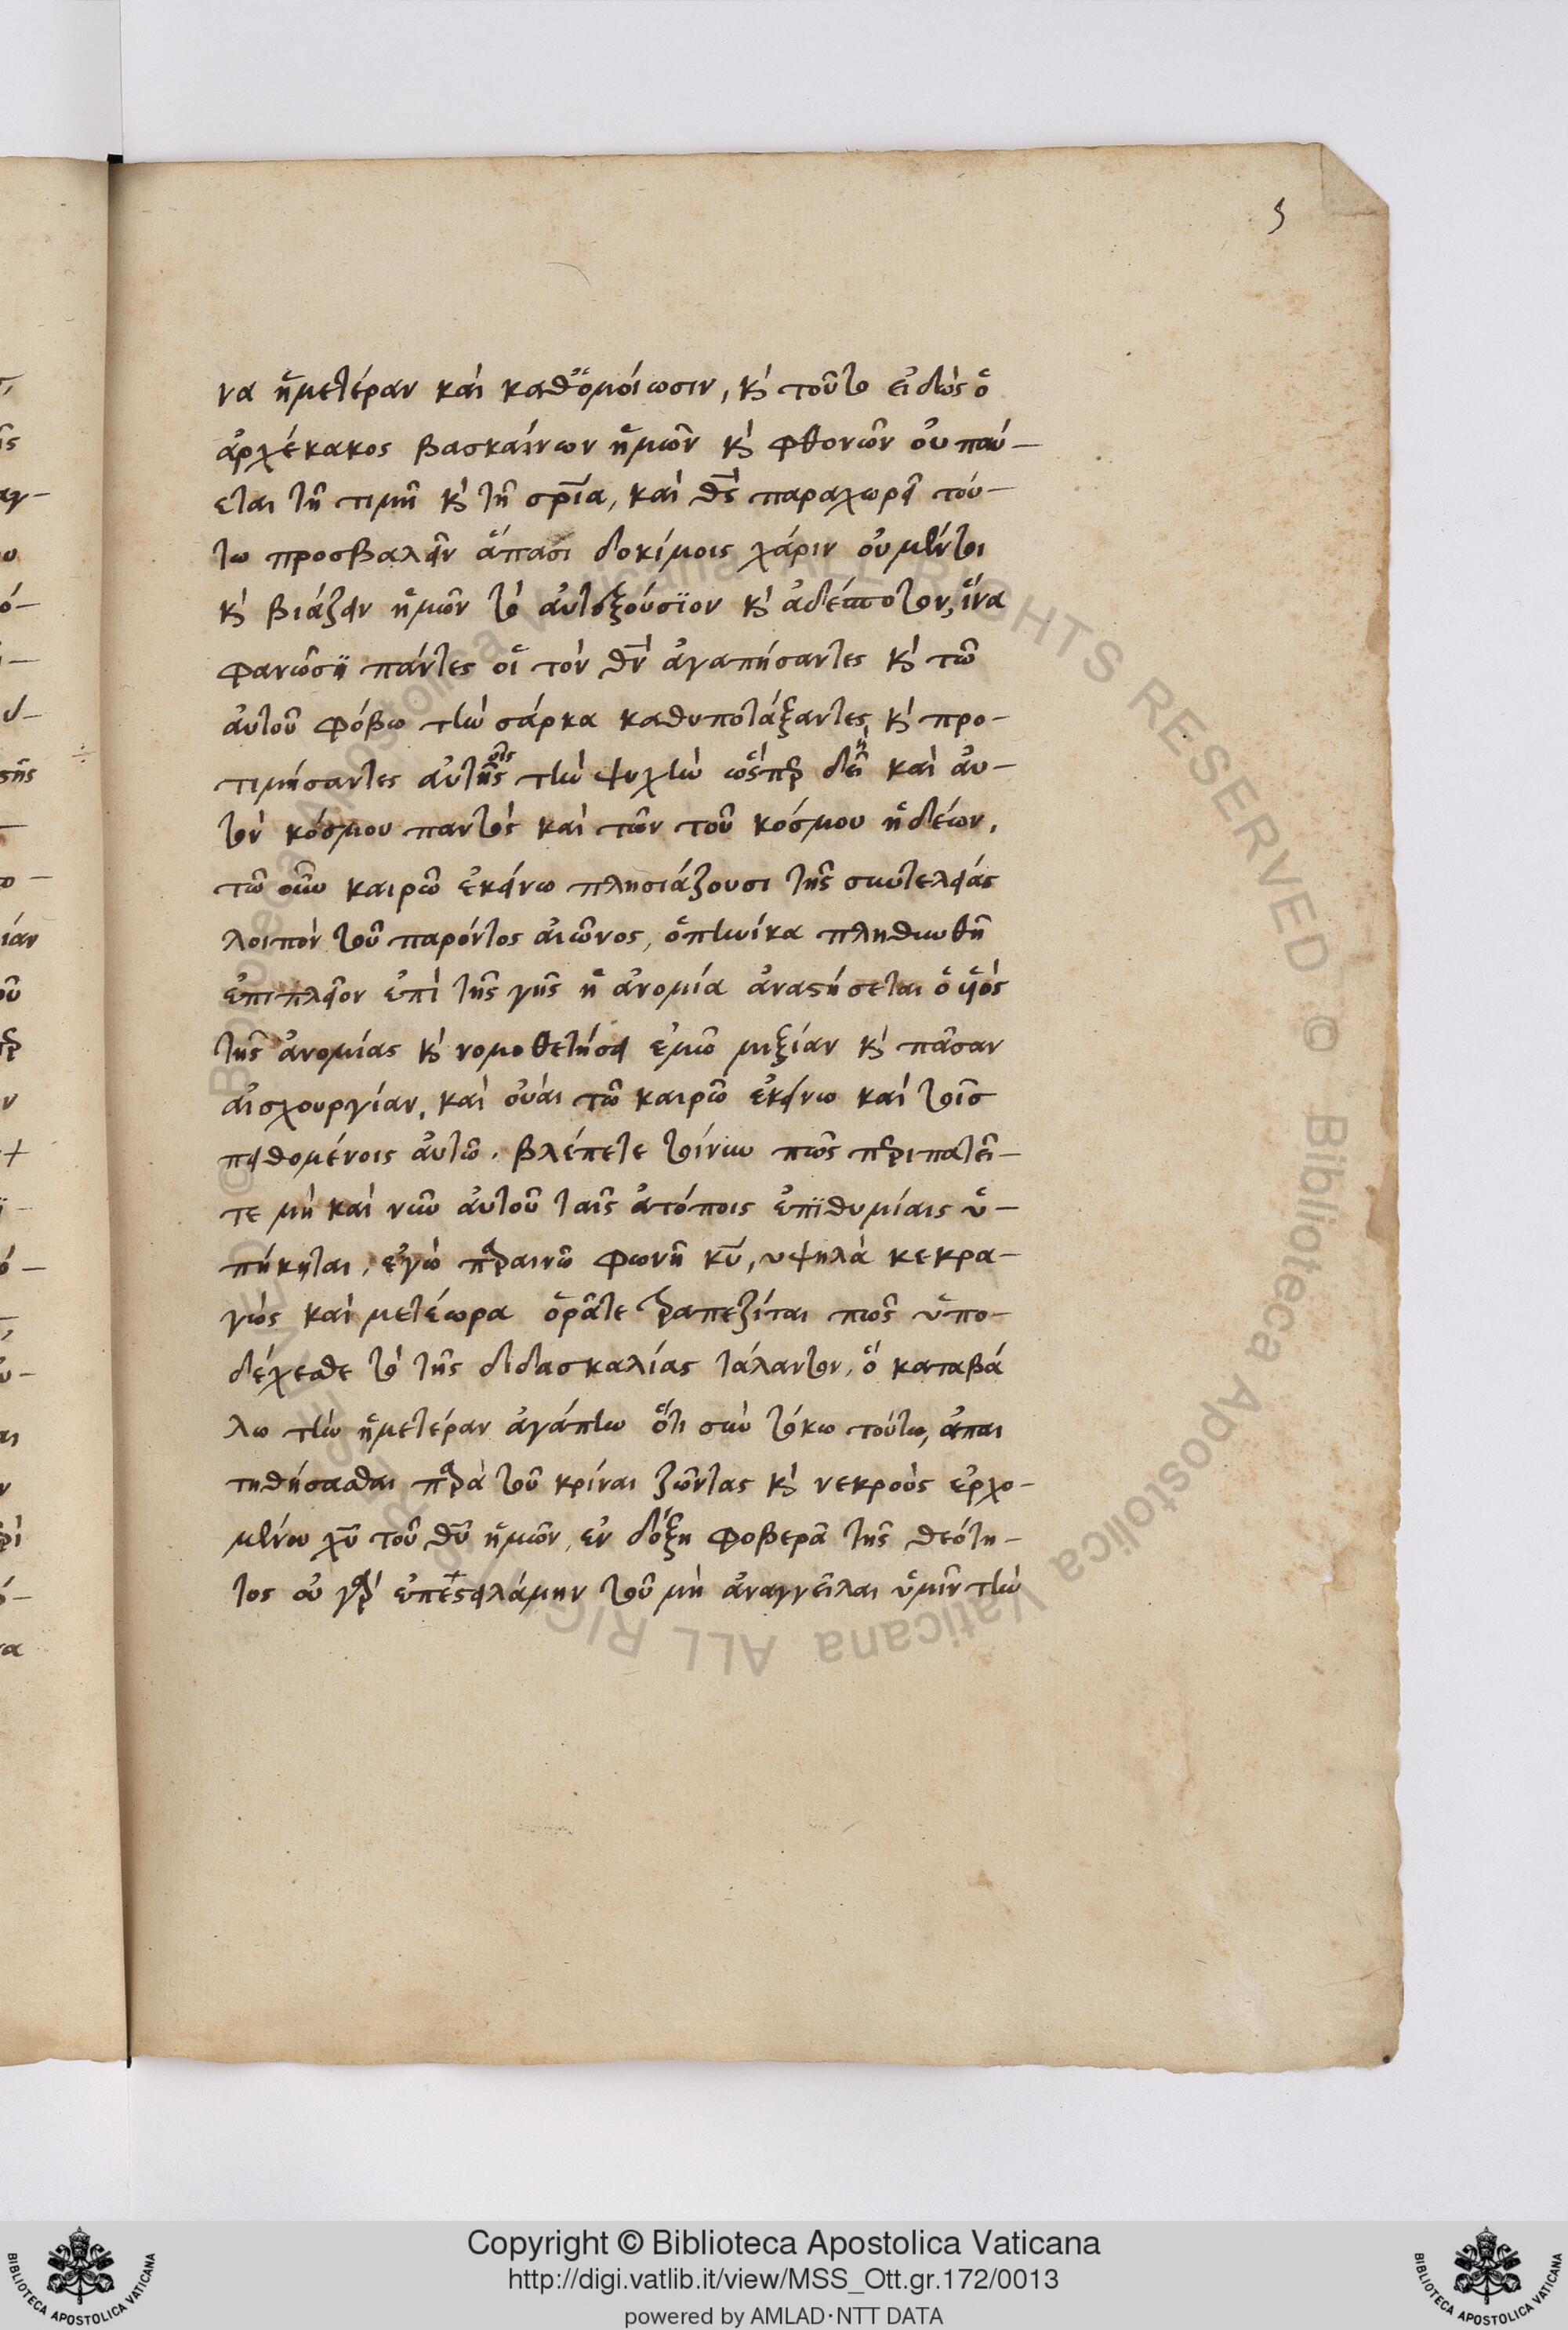 5
να ἡμετέραν καὶ καθ' ὁμοίωσιν, κ̀ τοῦτο εἰδὼς ὁ
ἀρχέκακος βασκαίνων ἡμῶν κ̀ φθονῶν οὐ παύ-
εται τῆ τιμῆ κ̀ τῆ σρ̅ία, καὶ θς̅ παραχωρεῖ τού-
τω προσβαλεῖν ἅπασι δοκίμοις χάριν οὐ μέντοι
κ̀ βιάζειν ἡμῶν τὸ αὐτεξούσϊον κ̀ ἀδέσποτον, ἵνα
φανῶσϊ πάντες οἱ τὸν θν̅ ἀγαπήσαντες κ̀ τῶ
αὐτοῦ φόβω τὴν σάρκα καθυποτάξαντες, κ̀ προ-
τιμήσαντες αὐτῆς τὴν ψυχὴν ὥσπερ δεῖ καὶ αὐ-
τὸν κόσμου παντὸς καὶ τῶν τοῦ κόσμου ἡδέων,
τῶ οὖν καιρῶ ἐκείνω πλησιάζουσι τῆς συντελείας
λοιπὸν τοῦ παρόντος αἰῶνος, ὁπηνίκα πληθυνθῆ
ἐπιπλεῖον ἐπὶ τῆς γῆς ἡ ἀνομία ἀναστήσεται ὁ υἱὸς
τῆς ἀνομίας κ̀ νομοθετήσει μιξίαν κ̀ πᾶσαν
αἰσχουργίαν, καὶ οὐαὶ τῶ καιρῶ ἐκείνω καὶ τοῖς
πειθομένοις αὐτῶ. βλέπετε τοίνυν πῶς περιπατεῖ-
τε μὴ καὶ νῦν αὐτοῦ ταῖς ἀτόποις ἐπϊθυμίαις ὑ-
πήκηται, ἐγὼ παραινῶ φωνῆ κυ̅, υψηλὰ κεκρα-
γὼς καὶ μετέωρα ὁρᾶτε τραπεζίται πῶς ὑπο-
δέχεσθε τὸ τῆς διδασκαλίας τάλαντον, ὃ καταβά
λω τὴν ἡμετέραν ἀγάπην ὅτι σὺν τόκω τούτω, ἀπαι
τηθήσασθαι παρὰ τοῦ κρίναι ζῶντας κ̀ νεκροὺς ἐρχο-
μένου χυ̅ τοῦ θυ̅ ἡμῶν, ἐν δόξη φοβερᾶ τῆς θεότη-
τος οὐ γὰρ ὑπεστειλάμην τοῦ μὴ ἀναγγεῖλαι ὑμῖν τὴν
Copyright © Biblioteca Apostolica Vaticana
http://digi.vatlib.it/view/MSS_Ott.gr.172/0013
powered by AMLAD·NTT DATA